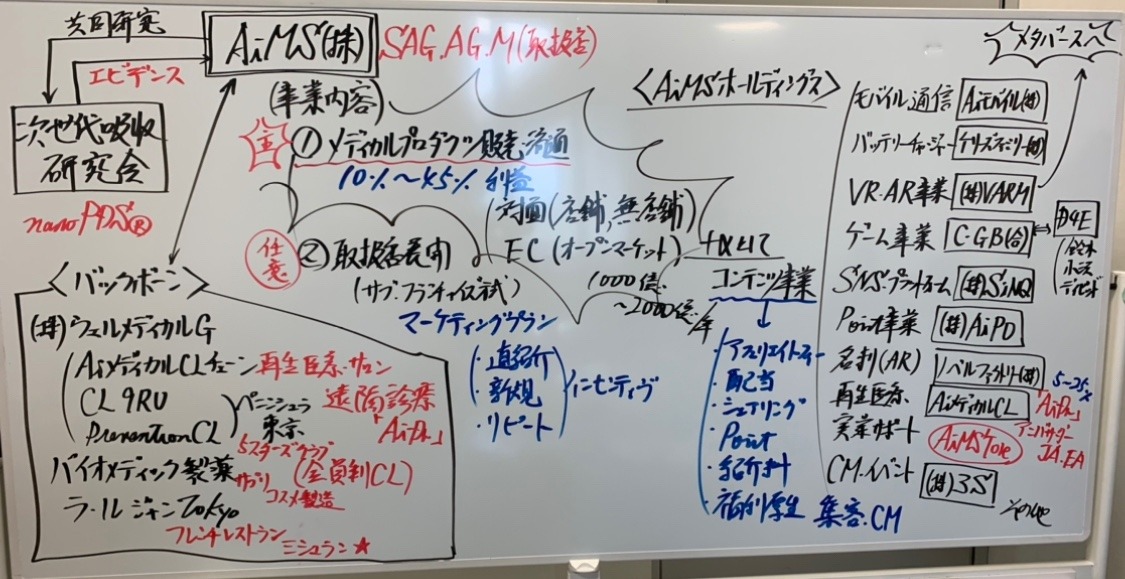 共同研究
エビデンス
次世代吸収
研究会
nanoPDS®
AiMS(株)
SAG.AG.M(取扱店)
(事業内容)
主
①メディカルプロダクツ販売・流通
10%〜45% 利益
対面(店舗,無店舗)
EC(オープンマーケット)
1000億
〜2000億/年
任意
②取扱店展開
(サブ・フランチャイズ式)
マーケティングプラン
・直紹介
・新規
・リピート
インセティヴ
+αとして
コンテンツ事業
・アフェリエイトフィー
・配当
・シェアリング
・Point
・紹介料
・福利厚生
集客・CM
<バックボーン>
(株)ウェルメディカルG
AiメディカルCLチェーン 再生医療・サロン
CL 9RU
PreventionCL
ペニンシュラ
東京
遠隔診療
「AiDr.」
5スターズクラブ
(会員制CL)
バイオメディック製薬 サプリ
コスメ製造
ラ・ルジャンTokyo
フレンチレストラン
ミシュラン★
<AiMSホールディングス>
メタバースへ
モバイル通信 Aiモバイル(株)
バッテリーチャージャー
VR・AR事業 (株)VARM
ゲーム事業 C・G・B(合)
D4E
SNSプラットホーム (株)SiNQ
Point事業 (株)AiPO
名刺(AR) ノベルファクトリー(株)
再生医療 AiメディカルCL
5-25%
「AiDr.」
アンバサダー
JA.EA
実業サポート AiMSTore
CM.イベント (株)3S
その他